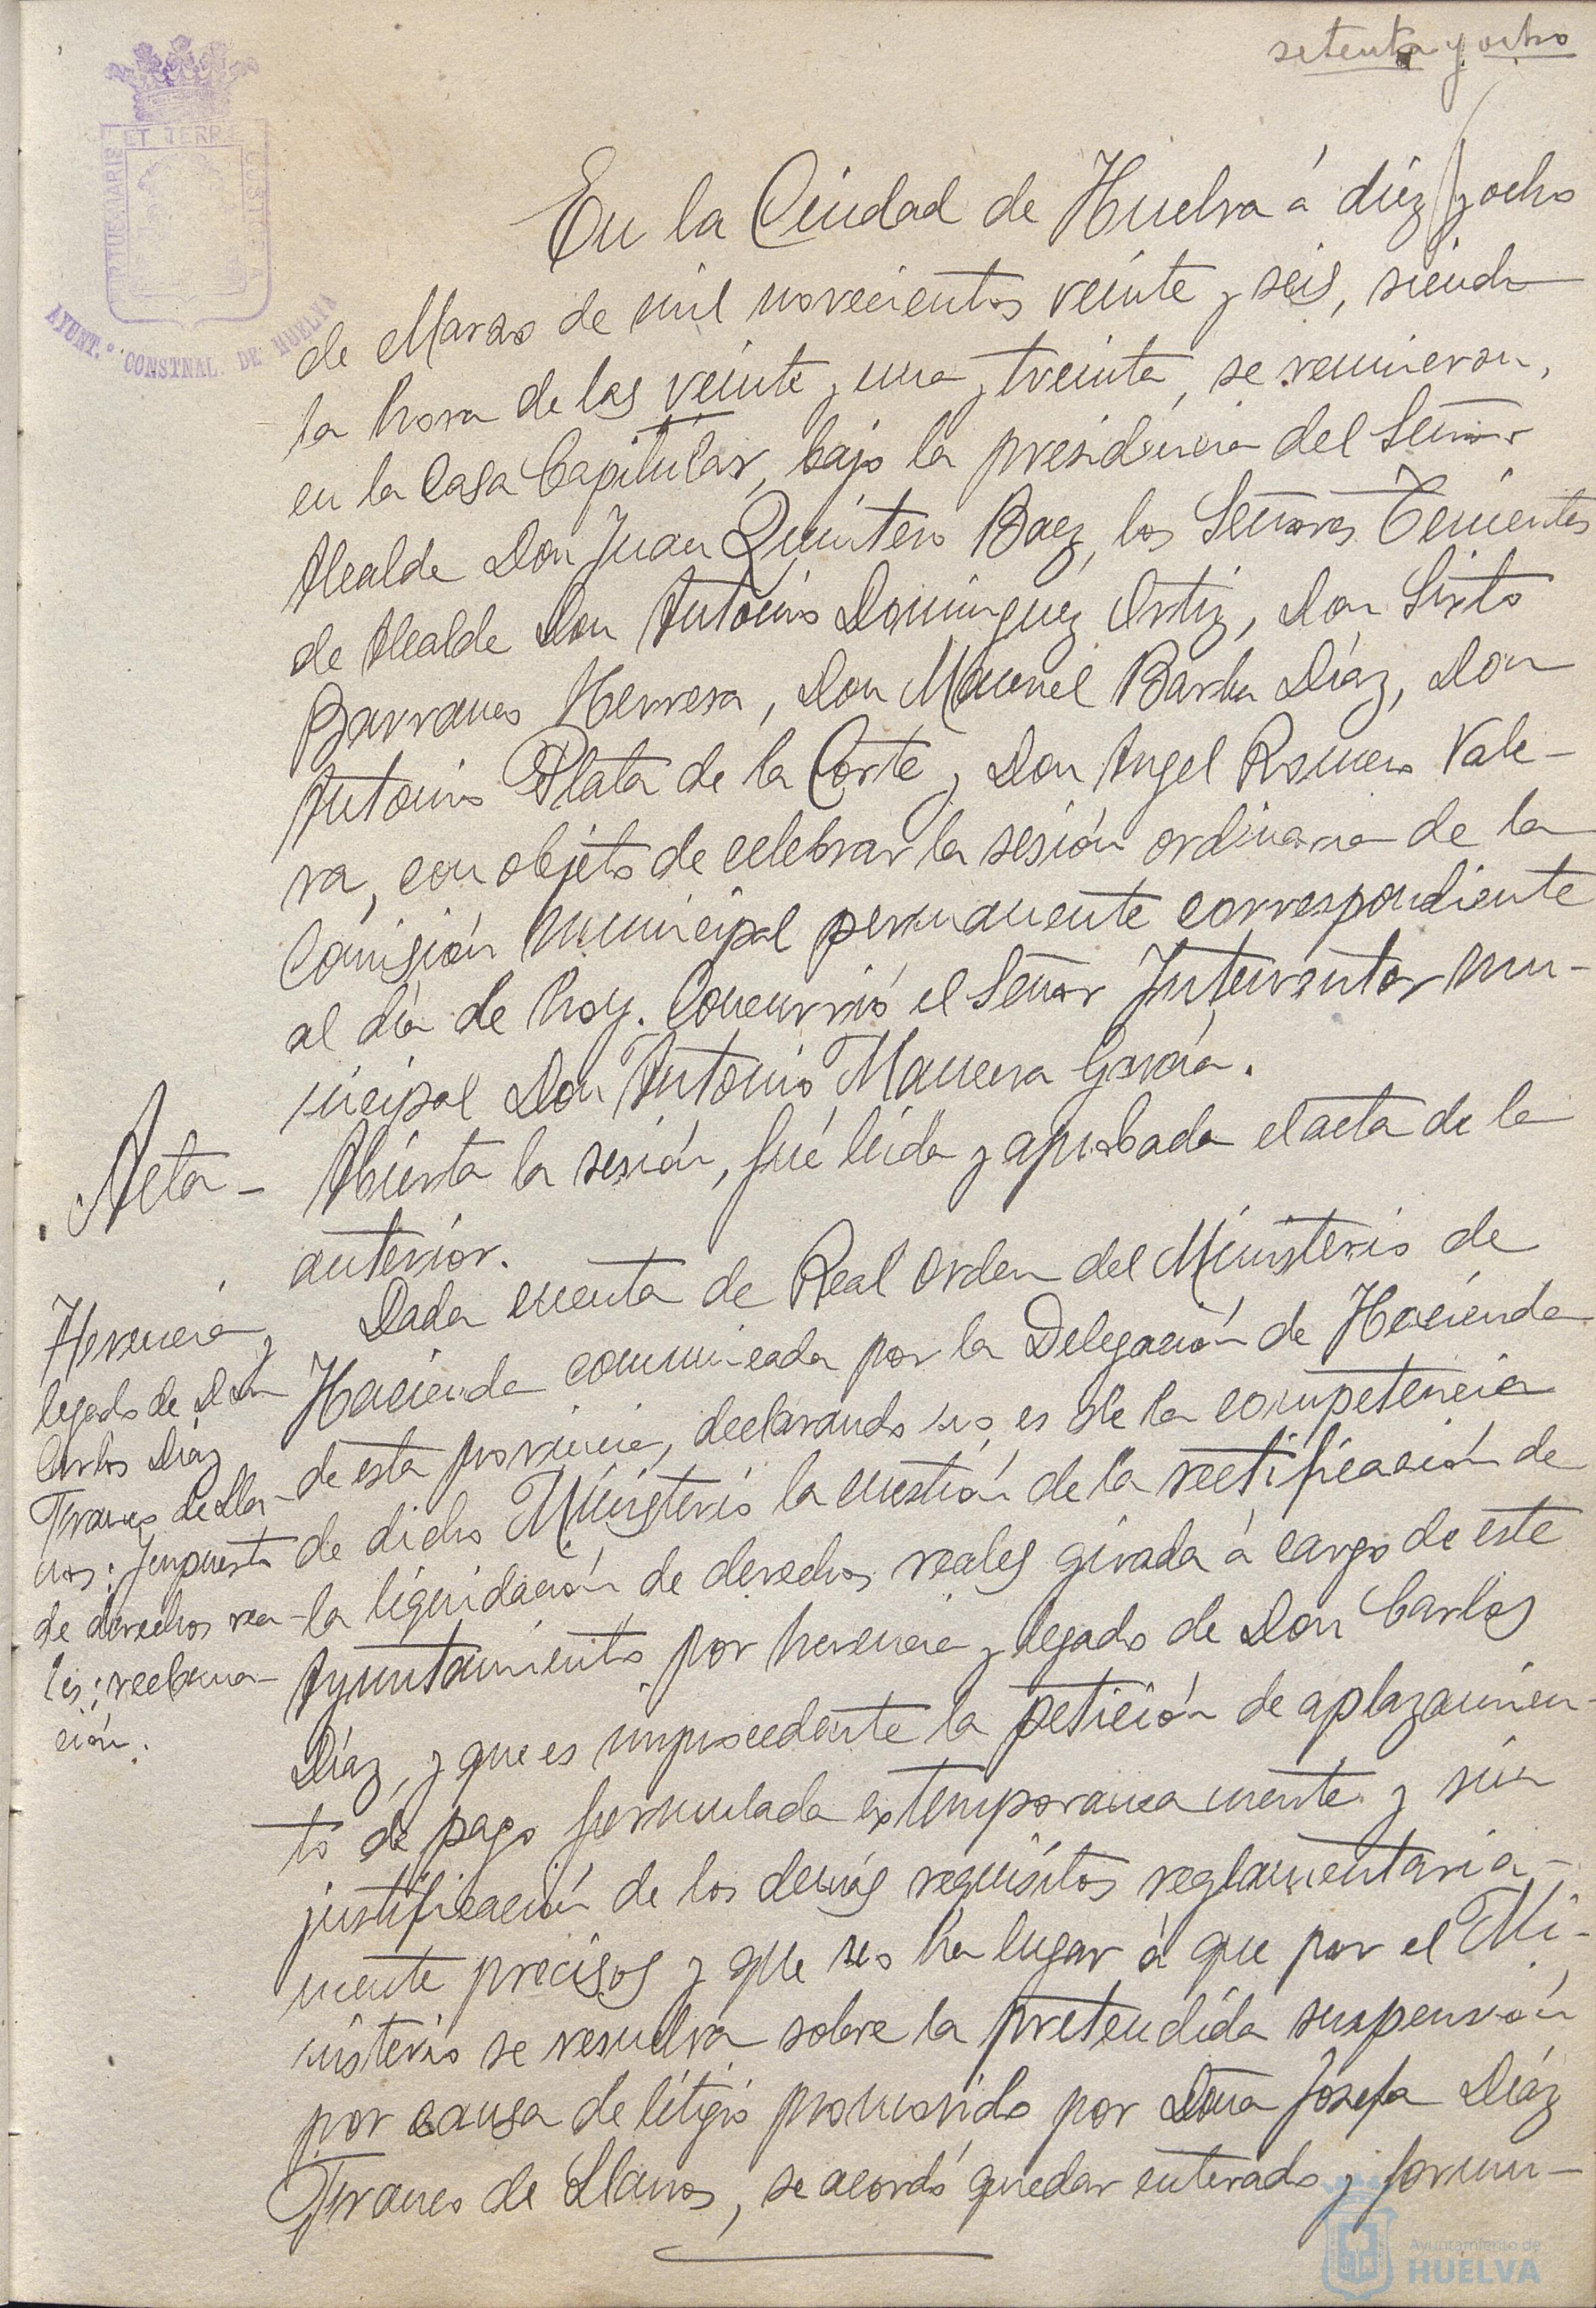 setenta y ocho
PORTUS MARIS ET TERRE CUSTODIA
AYUNT.º CONSTNAL. DE HUELVA
En la Ciudad de Huelva á diez y ocho
de Marzo de mil novecientos veinte y seis, siendo
la hora de las veinte y una y treinta, se reunieron,
en la Casa Capitular, bajo la presidencia del Señor
Alcalde Don Juan Quintero Baez, los Señores Tenientes
de Alcalde Don Antonio Dominguez Ortiz, Don Sixto
Barranco Herrera, Don Manuel Barba Díaz, Don
Antonio Plata de la Corte y Don Angel Romero Vale-
ra, con objeto de celebrar la sesión ordinaria de la
Comisión municipal permanente correspondiente
al día de hoy. Concurrió el Señor Interventor mu-
nicipal Don Antonio Mancera García.
Acta-
Abierta la sesión, fué leida y aprobada el acta de la
anterior.
Herencia y
legado de Don
Carlos Díaz
Franco de Lla-
nos: Impuesto
de derechos rea-
les; reclama-
ción.
Dada cuenta de Real orden del Ministerio de
Hacienda comunicada por la Delegación de Hacienda
de esta provincia, declarando no es de la competencia
de dicho Ministerio la cuestión de la rectificación de
la liquidación de derechos reales girada á cargo de este
Ayuntamiento por herencia y legado de Don Carlos
Díaz, y que es improcedente la petición de aplazamien-
to de pago formulada extemporaneamente y sin
justificación de los demás requisitos reglamentaria-
mente precisos y que no ha lugar á que por el Mi-
nisterio se resuelva sobre la pretendida suspensión
por causa de litigio promovido por Doña Josefa Díaz
Franco de Llanos, se acordó quedar enterado y formu-
Ayuntamiento de
HUELVA